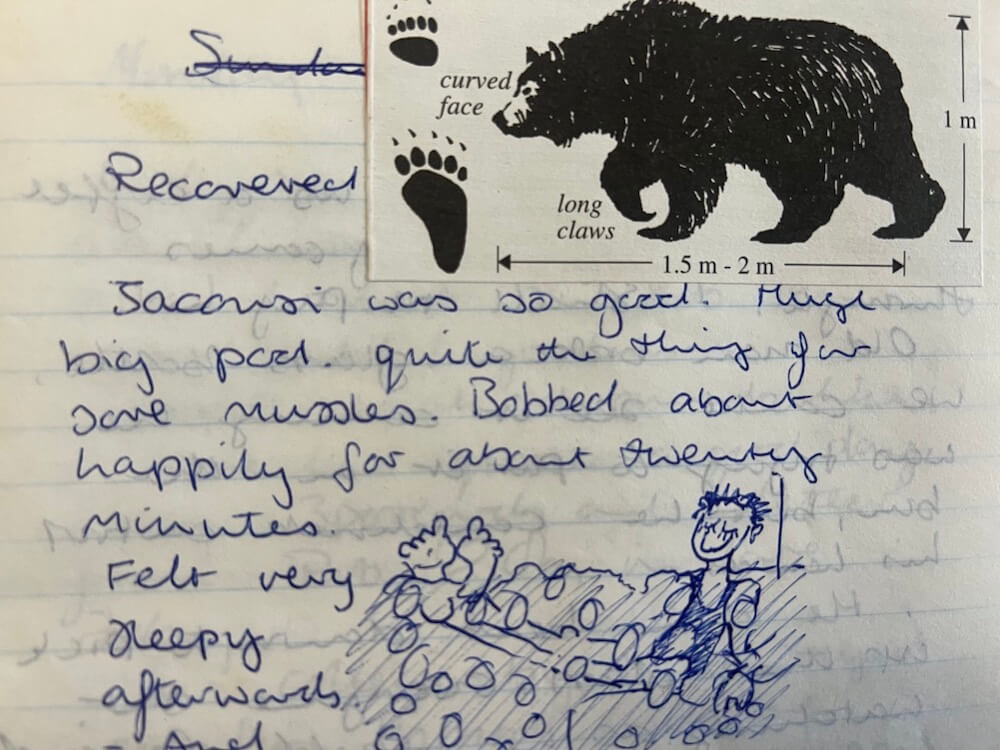 Sunda
curved
face
1 m
Recovered
long
claws
1.5 m - 2 m
Jacousi was so good. Huge
big pool. quite the thing for
sore mussles. Bobbed about
happily for about twenty
minutes.
Felt very
sleepy
afterwards.
- And